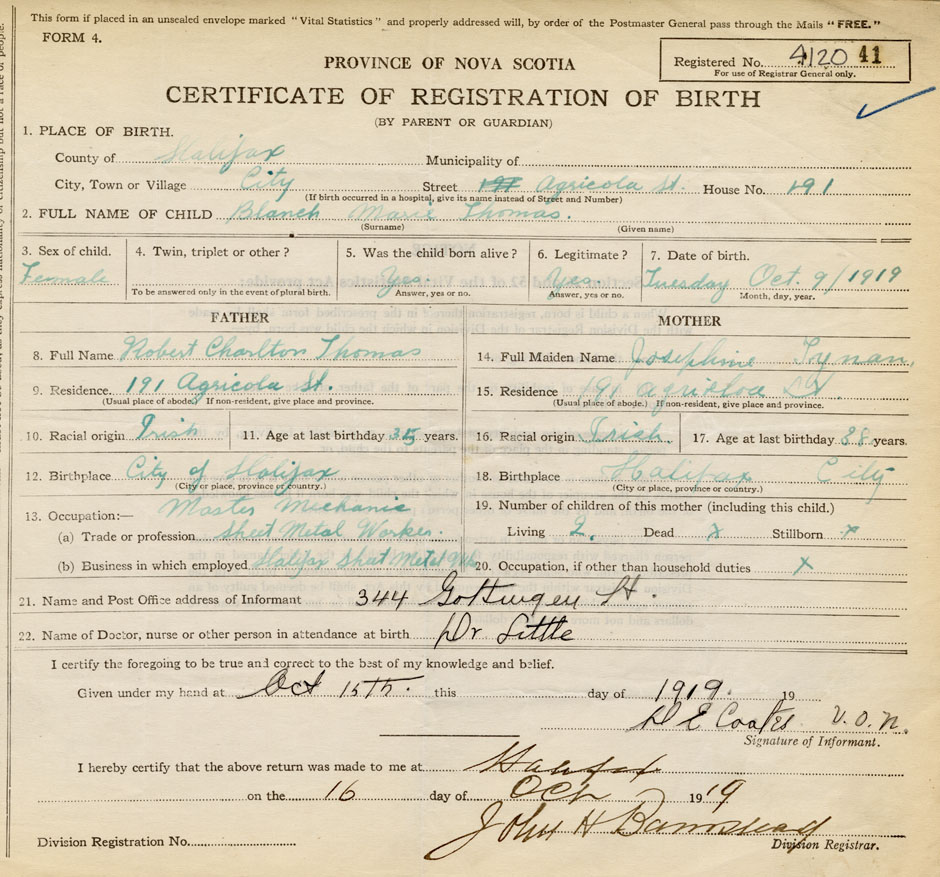 This form if placed in an unsealed envelope marked "Vital Statistics" and properly addressed will, by order of the Postmaster General pass through the Mails "FREE."
FORM 4.
Registered No. 4120 41
For use of Registrar General only.
PROVINCE OF NOVA SCOTIA
CERTIFICATE OF REGISTRATION OF BIRTH
(BY PARENT OR GUARDIAN)
1. PLACE OF BIRTH.
County of Halifax Municipality of
City, Town or Village City Street Agricola St. House No. 191
(If birth occurred in a hospital, give its name instead of Street and Number)
2. FULL NAME OF CHILD Blanch Marie Thomas.
(Surname) (Given name)
3. Sex of child. 4. Twin, triplet or other? 5. Was the child born alive? 6. Legitimate? 7. Date of birth.
Female Yes Yes Tuesday Oct. 9/1919
To be answered only in the event of plural birth. Answer, yes or no. Answer, yes or no. Month, day, year.
FATHER MOTHER
8. Full Name Robert Charlton Thomas 14. Full Maiden Name Josephine
9. Residence. 191 Agricola St. 15. Residence 191 Agricola St.
(Usual place of abode.) If non-resident, give place and province. (Usual place of abode.) If non-resident, give place and province.
10. Racial origin Irish 11. Age at last birthday 35 years. 16. Racial origin Irish. 17. Age at last birthday 38 years.
12. Birthplace City of Halifax 18. Birthplace Halifax City
(City or place, province or country.) (City or place, province or country.)
13. Occupation:— Master Mechanic 19. Number of children of this mother (including this child.)
(a) Trade or profession Sheet Metal Worker. Living 2. Dead x Stillborn x
(b) Business in which employed Halifax Sheet Metal Wks 20. Occupation, if other than household duties x
21. Name and Post Office address of Informant 344 Gottingen St.
22. Name of Doctor, nurse or other person in attendance at birth Dr Little
I certify the foregoing to be true and correct to the best of my knowledge and belief.
Given under my hand at Oct 15th. this day of 1919. 19
D E Coates V.O.N.
Signature of Informant.
I hereby certify that the above return was made to me at Halifax
on the 16 day of Oct 1919
John H
Division Registration No. Division Registrar.